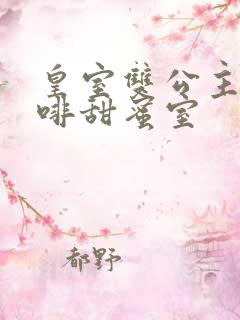 皇室雙公主
啡甜蜜室
都野